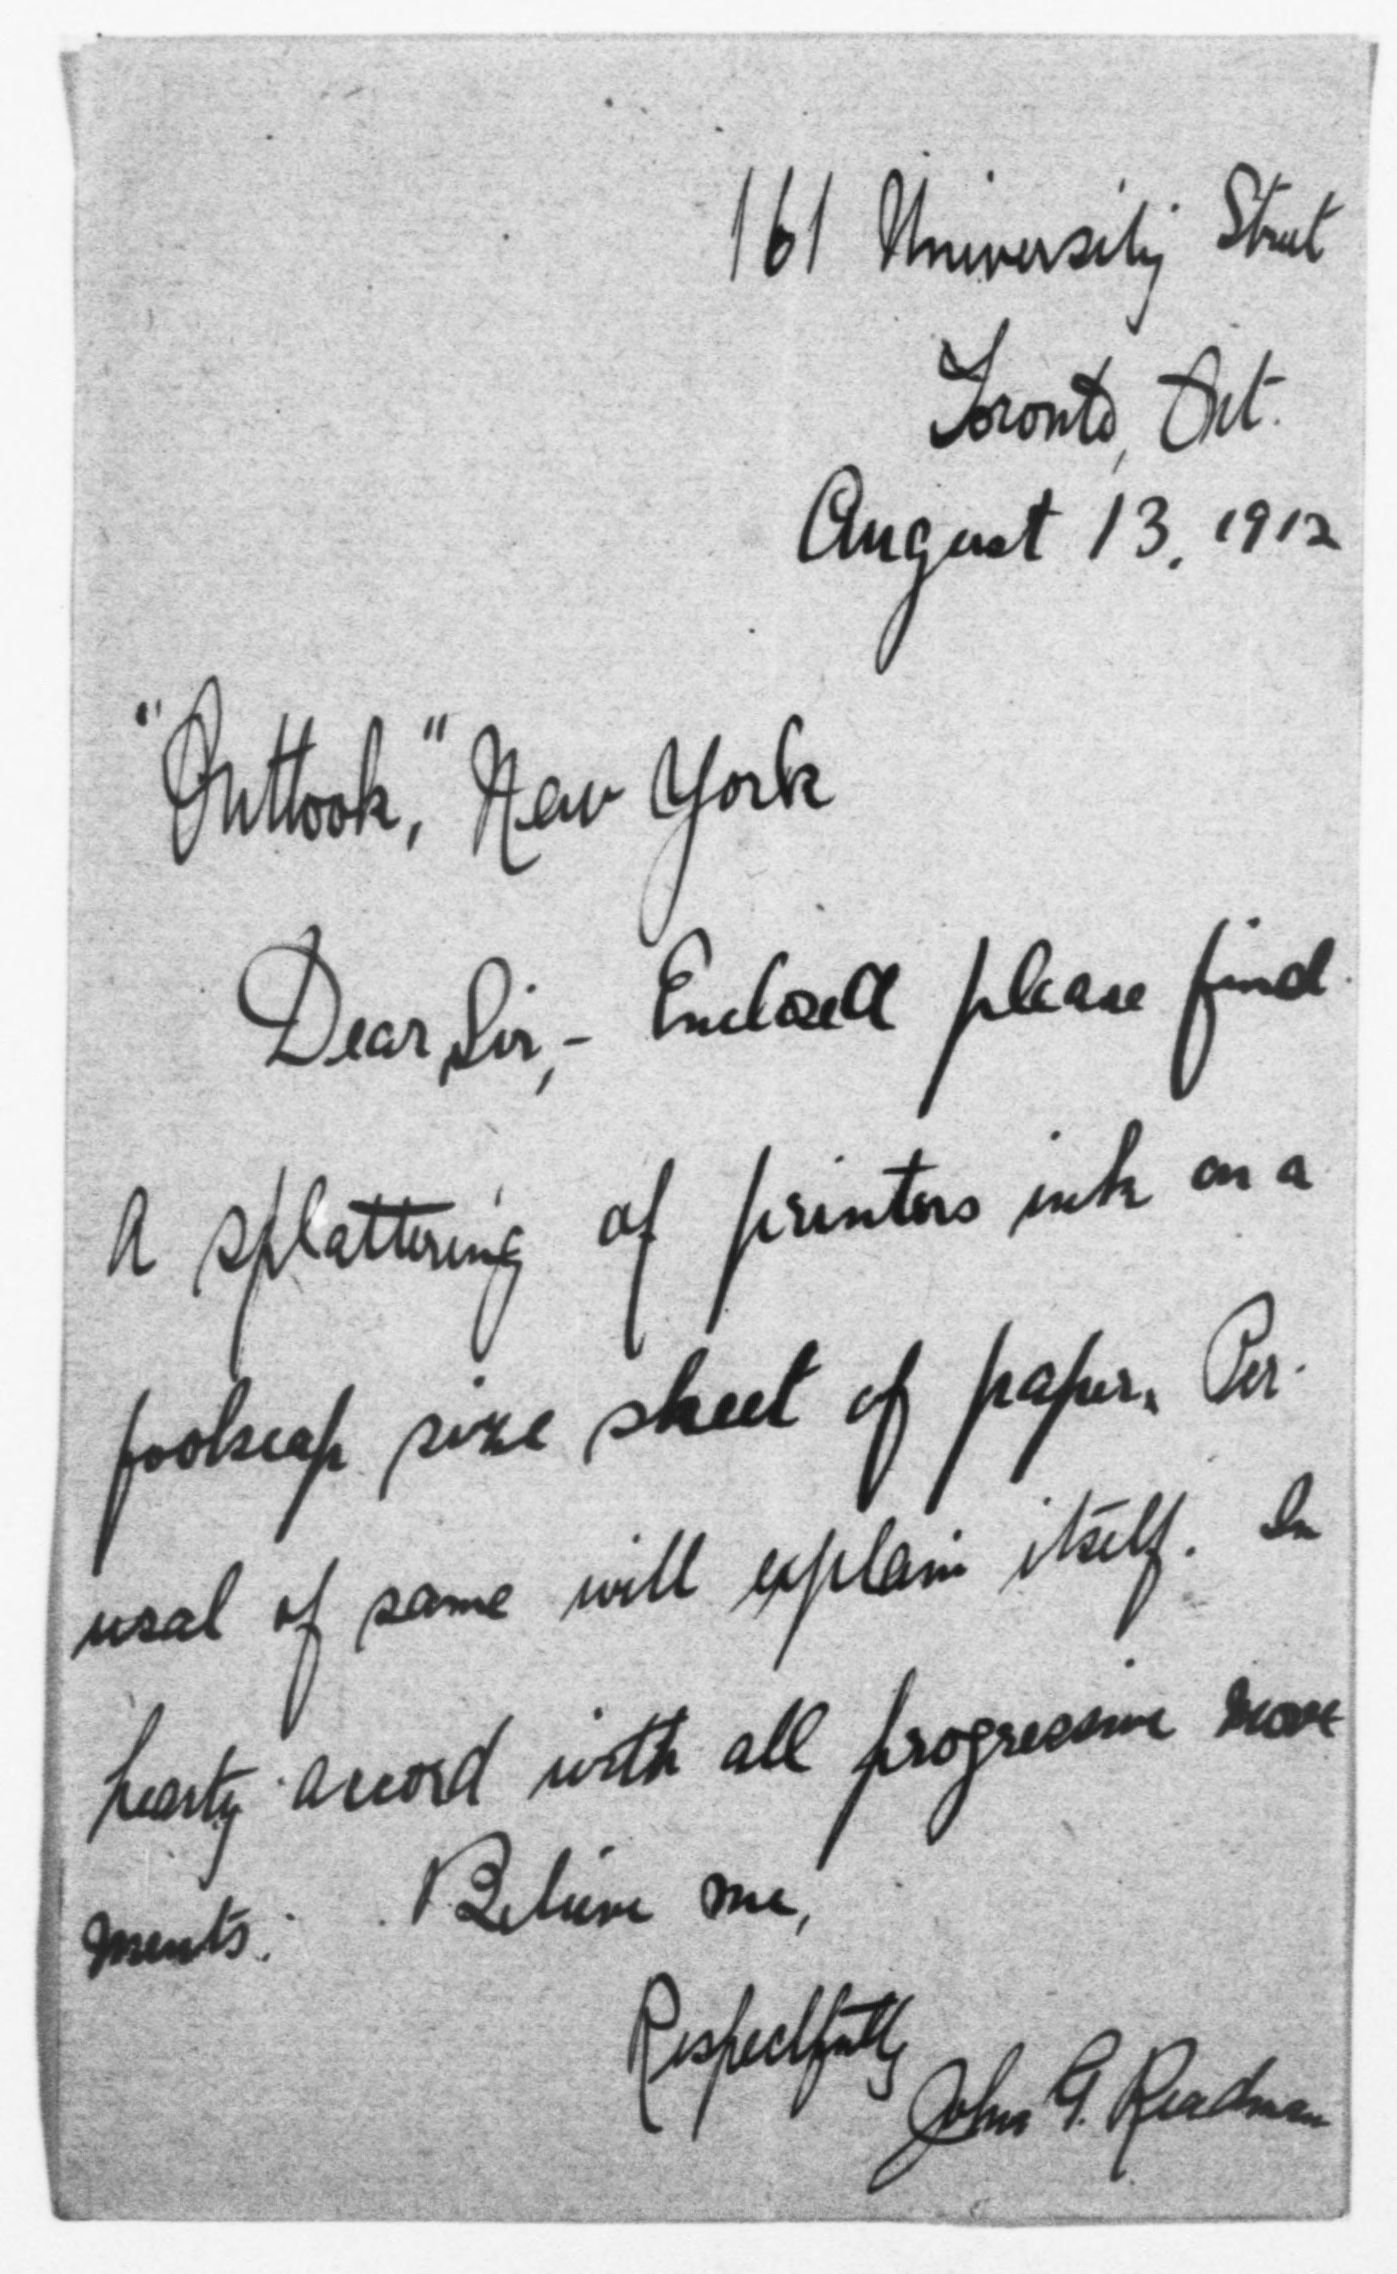 161 University Street
Toronto, Ont.
August 13, 1912
"Outlook," New York
Dear Sir,- Enclosed please find
a splattering of printers ink on a
foolscap size sheet of paper. Per-
usal of same will explain itself. In
hearty accord with all progressive move
ments. Believe me,
Respectfully
John G. Readman